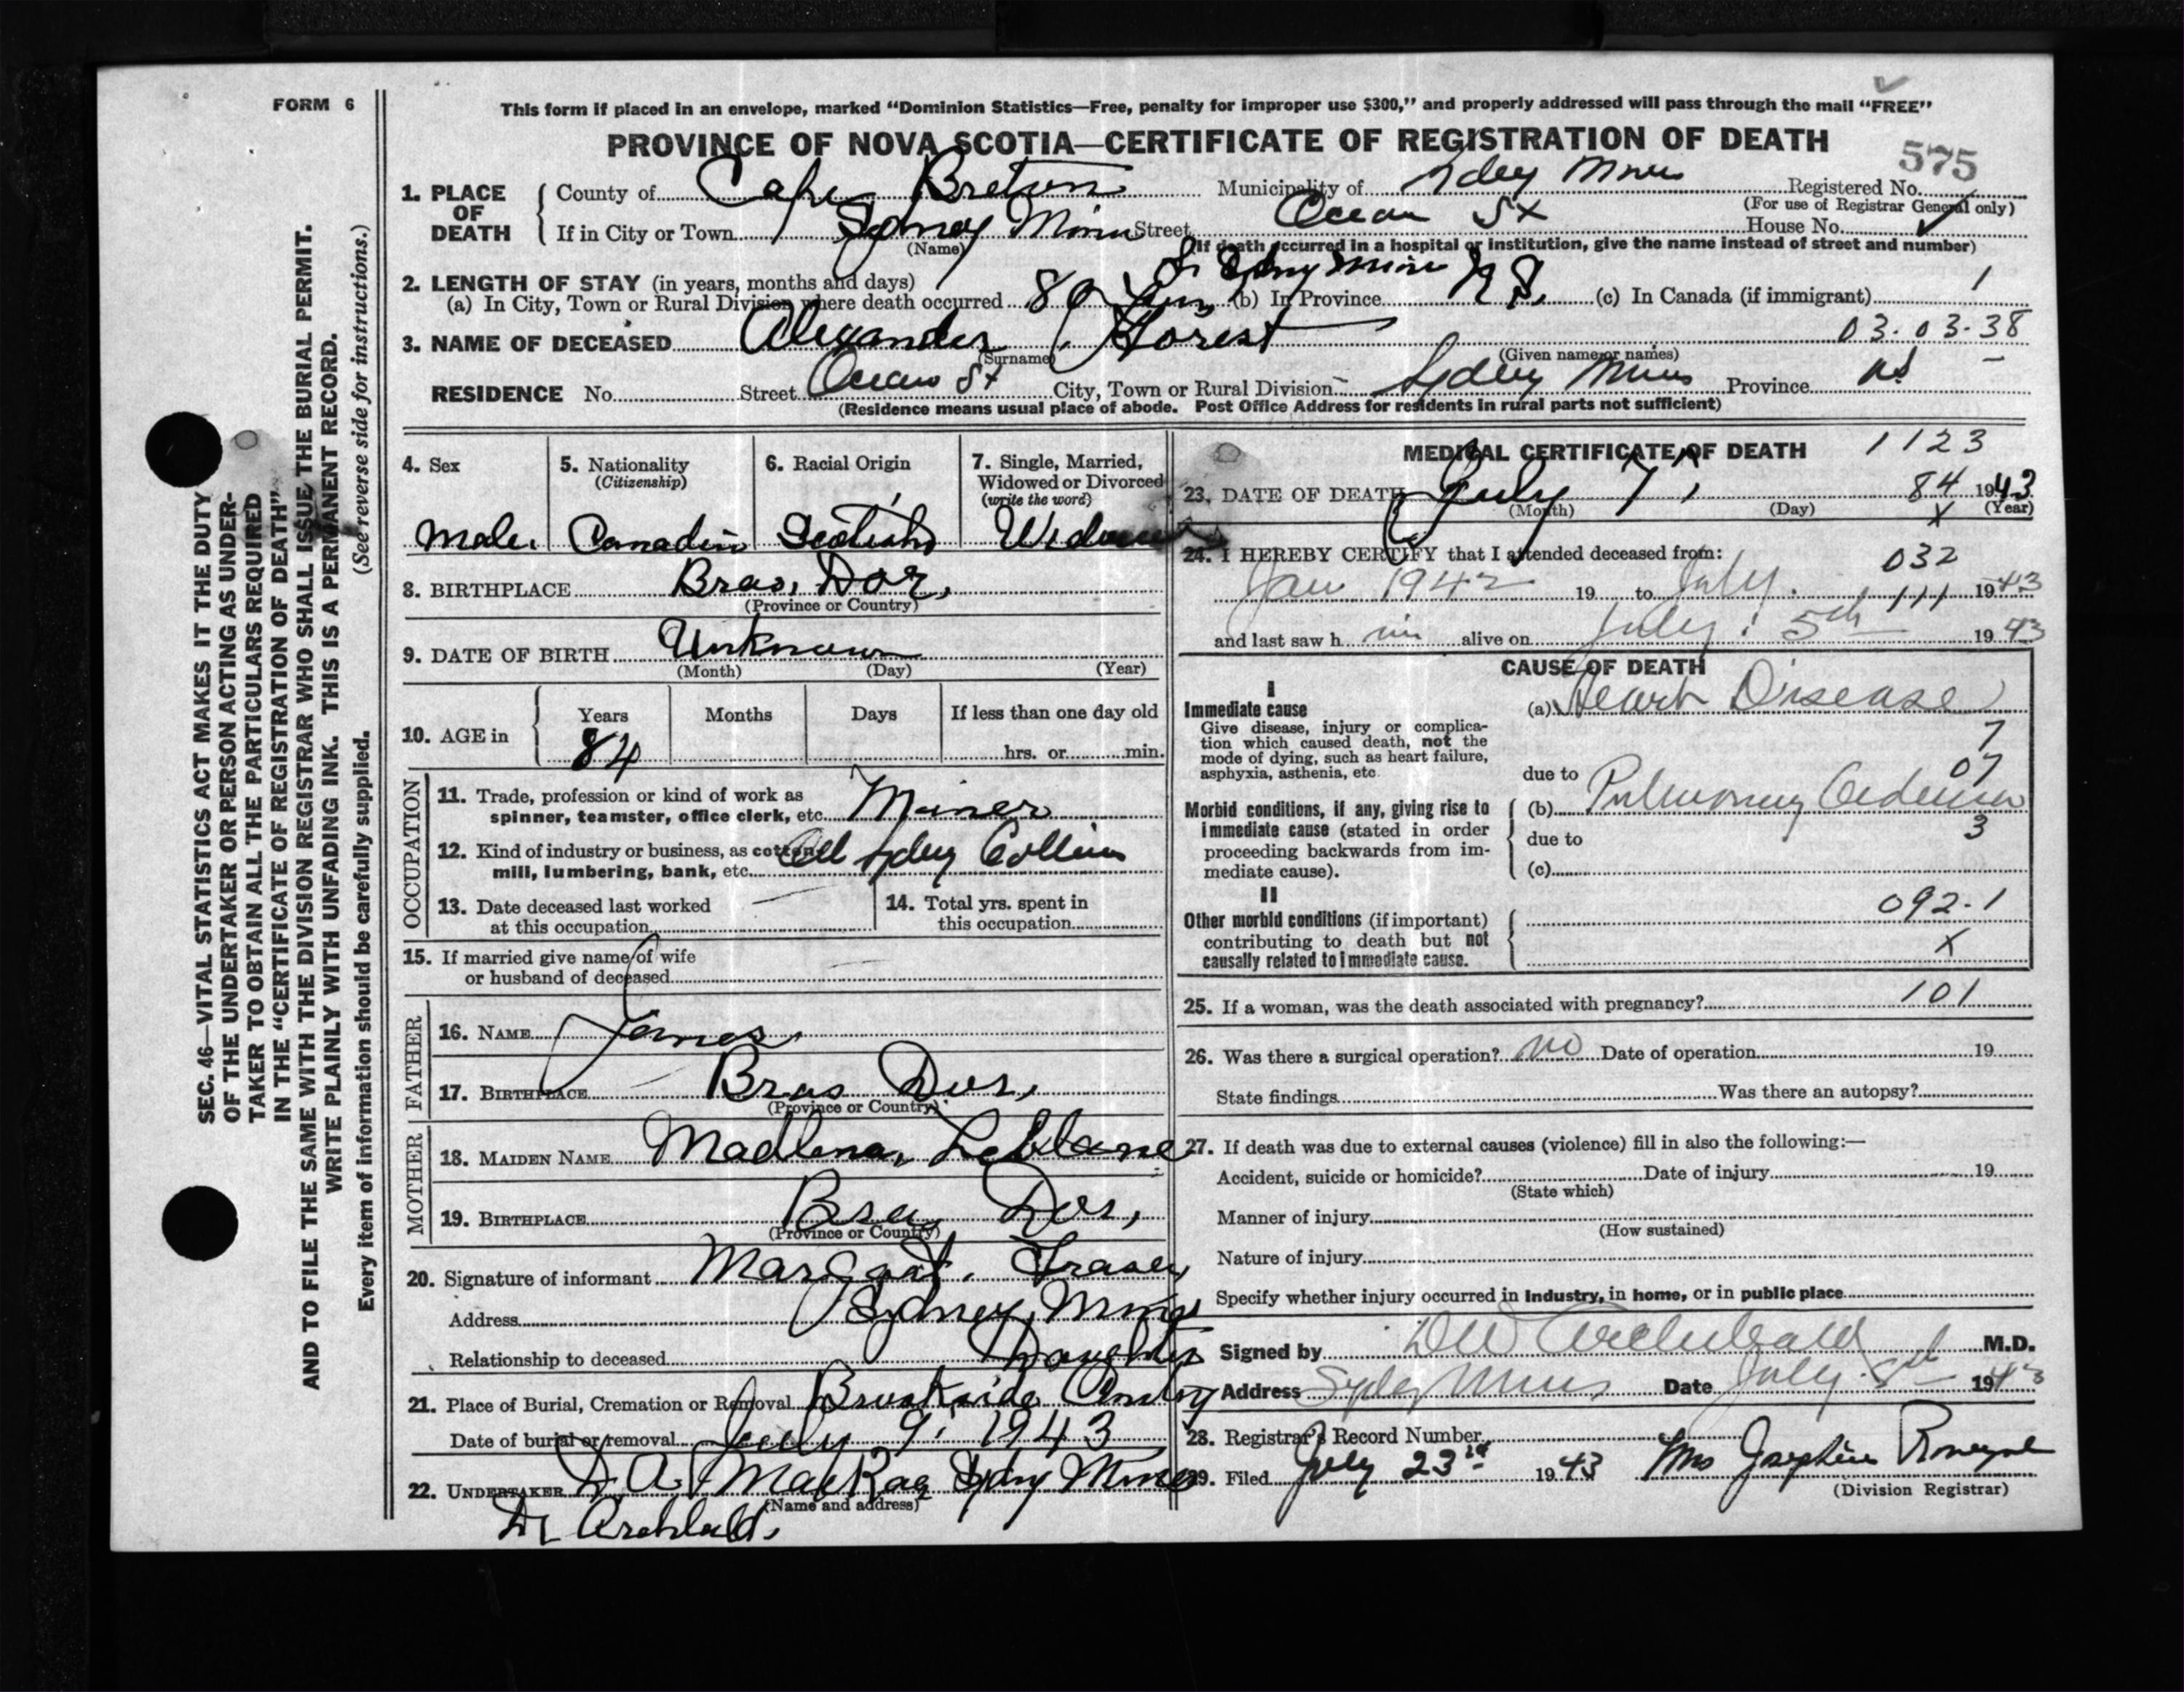 FORM 6
This form if placed in an envelope, marked “Dominion Statistics—Free, penalty for improper use $300,” and properly addressed will pass through the mail “FREE”
PROVINCE OF NOVA SCOTIA—CERTIFICATE OF REGISTRATION OF DEATH
575
1. PLACE OF DEATH
County of Cape Breton Municipality of Sdey Mines Registered No.
(For use of Registrar General only)
If in City or Town Sydney Mines Street Ocean St House No.
(Name) (If death occurred in a hospital or institution, give the name instead of street and number)
2. LENGTH OF STAY (in years, months and days)
(a) In City, Town or Rural Division where death occurred 80 (b) In Province N S. (c) In Canada (if immigrant) 1
3. NAME OF DECEASED Alexander Forest 03.03.38
(Surname) (Given name or names)
RESIDENCE No. Street Ocean St City, Town or Rural Division Sydney Mines Province NS
(Residence means usual place of abode. Post Office Address for residents in rural parts not sufficient)
SEC. 46—VITAL STATISTICS ACT MAKES IT THE DUTY
OF THE UNDERTAKER OR PERSON ACTING AS UNDER-
TAKER TO OBTAIN ALL THE PARTICULARS REQUIRED
IN THE “CERTIFICATE OF REGISTRATION OF DEATH”
AND TO FILE THE SAME WITH THE DIVISION REGISTRAR WHO SHALL ISSUE THE BURIAL PERMIT.
WRITE PLAINLY WITH UNFADING INK. THIS IS A PERMANENT RECORD.
Every item of information should be carefully supplied. (See reverse side for instructions.)
4. Sex
Male.
5. Nationality
(Citizenship)
Canadin
6. Racial Origin
Scotish
7. Single, Married,
Widowed or Divorced
(write the word)
8. BIRTHPLACE Bras, Dor,
(Province or Country)
9. DATE OF BIRTH Unknown
(Month) (Day) (Year)
10. AGE in
Years Months Days If less than one day old
84 hrs. or min.
OCCUPATION
11. Trade, profession or kind of work as
spinner, teamster, office clerk, etc. Miner
12. Kind of industry or business, as cotton
mill, lumbering, bank, etc.
13. Date deceased last worked
at this occupation
14. Total yrs. spent in
this occupation
15. If married give name of wife
or husband of deceased
FATHER
16. NAME James,
17. BIRTHPLACE Bras Dor,
(Province or Country)
MOTHER
18. MAIDEN NAME Madlena, Leblanc
19. BIRTHPLACE Bras Dor,
(Province or Country)
20. Signature of informant Margart. Fraser
Address Sydney, Mines
Relationship to deceased Daughter
21. Place of Burial, Cremation or Removal Brookside
Date of burial or removal July 9, 1943
22. UNDERTAKER D. A. MacKay Sydny Mines
(Name and address)
Dr Archbald,
MEDICAL CERTIFICATE OF DEATH 1123
23. DATE OF DEATH July 7, 84 1943
(Month) (Day) (Year)
X
24. I HEREBY CERTIFY that I attended deceased from: 032
Jan 1942 19 to July 111 1943
and last saw h im alive on July 5th 1943
CAUSE OF DEATH
I
Immediate cause
Give disease, injury or complica-
tion which caused death, not the
mode of dying, such as heart failure,
asphyxia, asthenia, etc.
(a) Heart Disease
7
07
due to
Morbid conditions, if any, giving rise to
immediate cause (stated in order
proceeding backwards from im-
mediate cause).
(b) Pulmonary Oedema
3
due to
(c)
II
Other morbid conditions (if important)
contributing to death but not
causally related to immediate cause.
092.1
X
25. If a woman, was the death associated with pregnancy? 101
26. Was there a surgical operation? no Date of operation 19
State findings Was there an autopsy?
27. If death was due to external causes (violence) fill in also the following:—
Accident, suicide or homicide? Date of injury 19
(State which)
Manner of injury
(How sustained)
Nature of injury
Specify whether injury occurred in Industry, in home, or in public place
Signed by DW Archibald M.D.
Address Sydey Mines Date July 8th 1943
28. Registrar's Record Number
29. Filed July 23rd 1943 Mrs Josephine
(Division Registrar)